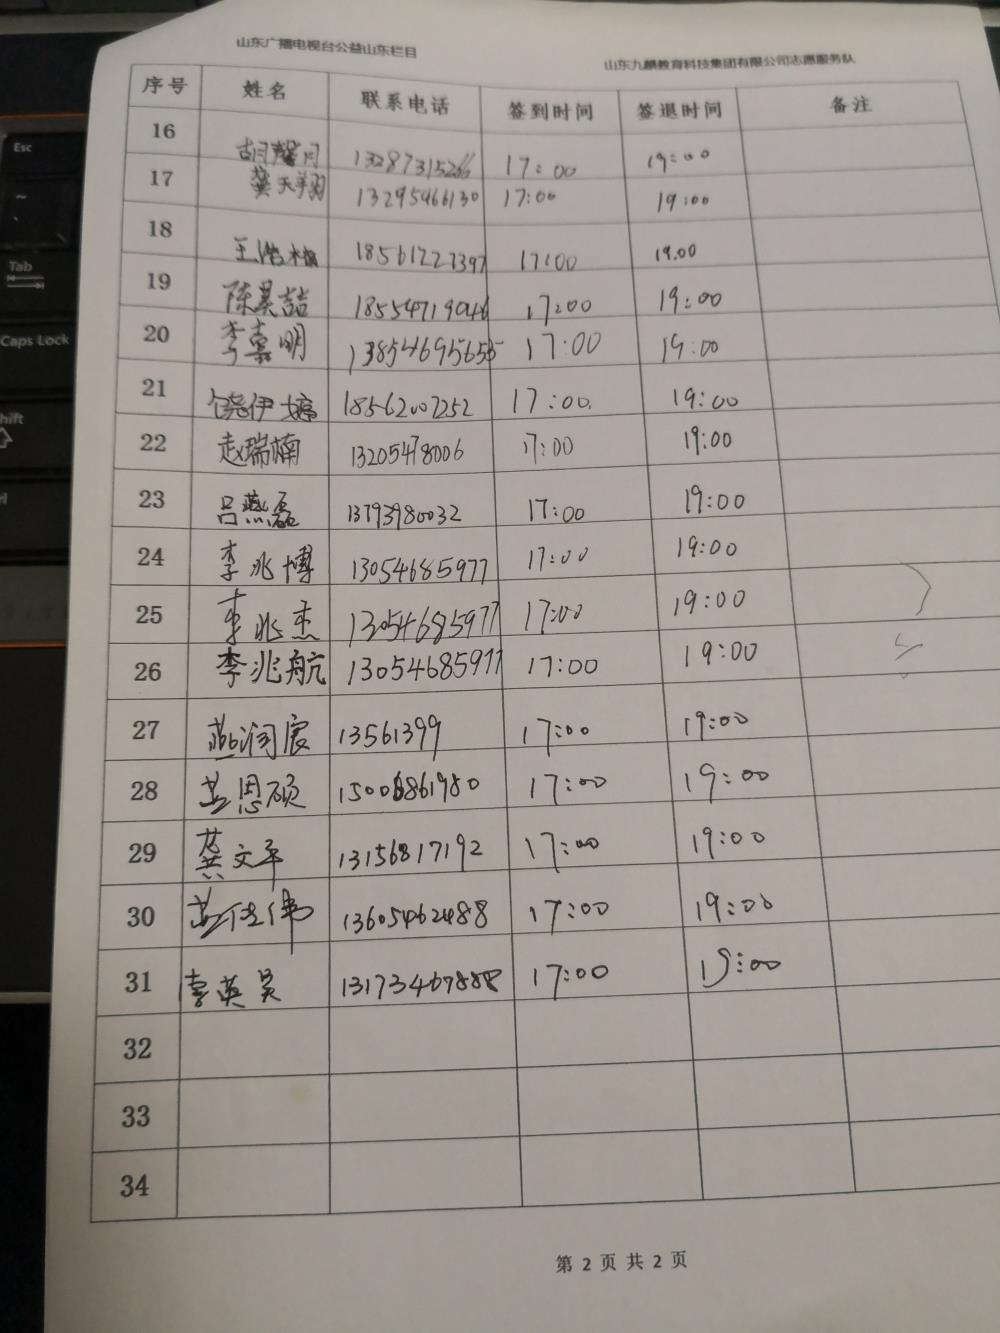 山东广播电视台公益山东栏目 山东九麟教育科技集团有限公司志愿服务队
序号 姓名 联系电话 签到时间 签退时间 备注
16 13287315266 17:00 19:00
17 龚天翔 13295466130 17:00 19:00
18 王浩楠 18561227397 17:00 19:00
19 陈昊喆 18554719046 17:00 19:00
20 李嘉明 13854695655 17:00 19:00
21 饶伊婷 18562007252 17:00 19:00
22 赵瑞楠 13205478006 17:00 19:00
23 吕燕磊 13793980032 17:00 19:00
24 李兆博 13054685977 17:00 19:00
25 李兆杰 13054685977 17:00 19:00
26 李兆航 13054685977 17:00 19:00
27 燕润宸 13561399 17:00 19:00
28 盖恩硕 15006861980 17:00 19:00
29 龚文平 13156817192 17:00 19:00
30 13605462488 17:00 19:00
31 李英昊 13173467888 17:00 19:00
32
33
34
第 2 页 共 2 页
Esc
~
Tab
Caps Lock